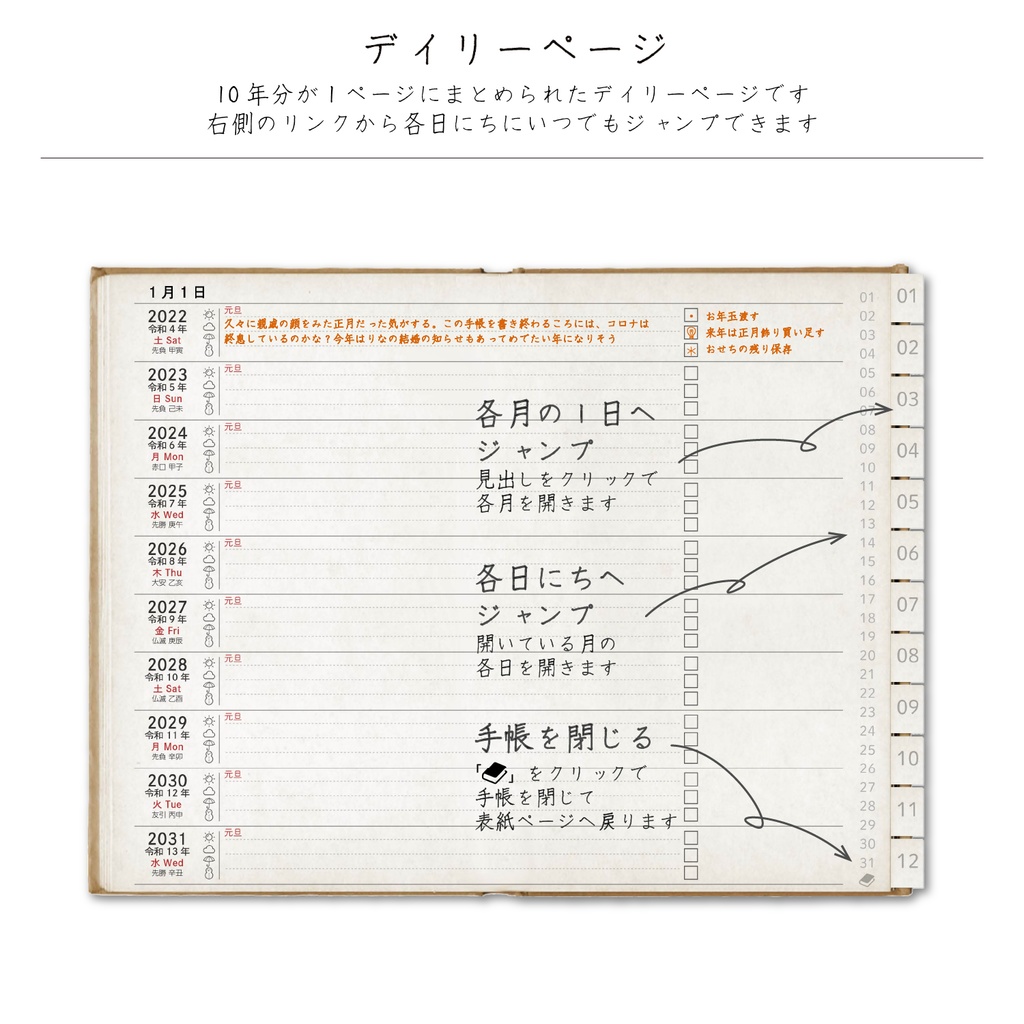 デイリーページ
10年分が1ページにまとめられたデイリーページです
右側のリンクから各日にちにいつでもジャンプできます
1月1日
2022
令和4年
土 Sat
先負 甲寅
元旦
久々に親戚の顔をみた正月だった気がする。この手帳を書き終わるころには、コロナは
終息しているのかな?今年はりなの結婚の知らせもあってめでたい年になりそう
お年玉渡す
来年は正月飾り買い足す
おせちの残り保存
2023
令和5年
日 Sun
先負 己未
元旦
2024
令和6年
月 Mon
赤口 甲子
元旦
2025
令和7年
水 Wed
先勝 庚午
元旦
2026
令和8年
木 Thu
大安 乙亥
元旦
2027
令和9年
金 Fri
仏滅 庚辰
元旦
2028
令和10年
土 Sat
仏滅 乙酉
元旦
2029
令和11年
月 Mon
先負 辛卯
元旦
2030
令和12年
火 Tue
友引 丙申
元旦
2031
令和13年
水 Wed
先勝 辛丑
元旦
各月の1日へ
ジャンプ
見出しをクリックで
各月を開きます
各日にちへ
ジャンプ
開いている月の
各日を開きます
手帳を閉じる
「」をクリックで
手帳を閉じて
表紙ページへ戻ります
01
02
03
04
05
06
07
08
09
10
11
12
13
14
15
16
17
18
19
20
21
22
23
24
25
26
27
28
29
30
31
01
02
03
04
05
06
07
08
09
10
11
12